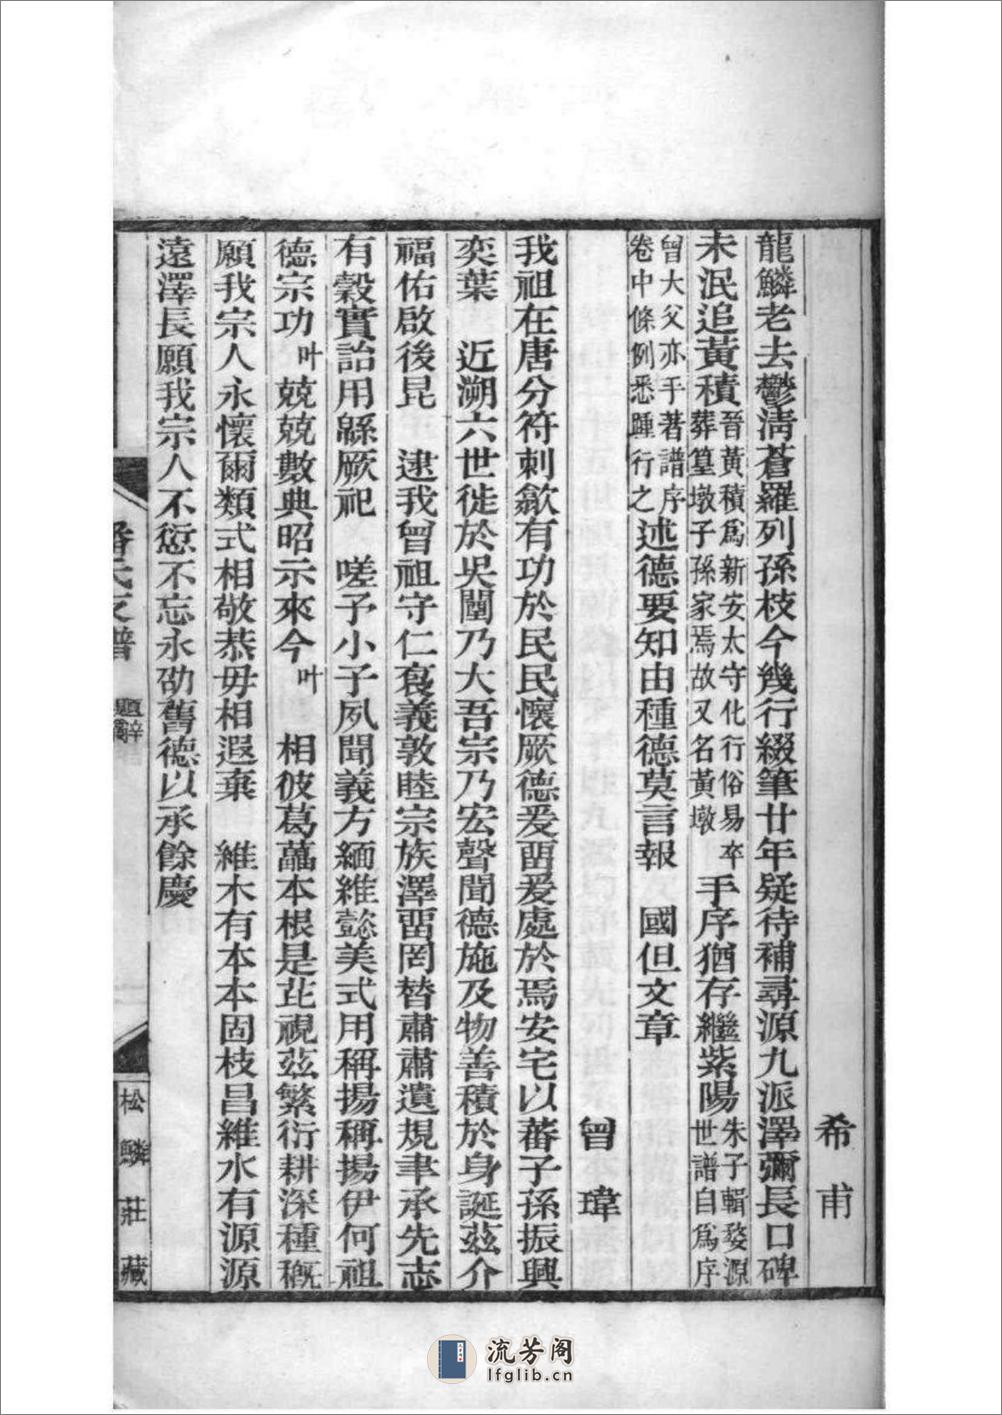 希甫
龍鱗老去鬱淸蒼羅列孫枝今幾行綴筆廿年疑待補尋源九派澤彌長口碑
未泯追黃積晉黃積爲新安太守化行俗易卒葬墓墩子孫家焉故又名黃墩手序猶存繼紫陽朱子輯婺源世譜自爲序
曾大父亦手著譜序卷中條例悉踵行之述德要知由種德莫言報　國但文章
曾瑋
我祖在唐分符刺歙有功於民民懷厥德爰畱爰處於焉安宅以蕃子孫振興
奕葉　近溯六世徙於吳闔乃大吾宗乃宏聲聞德施及物善積於身誕茲介
福佑啟後昆　逮我曾祖守仁裒義敦睦宗族澤畱罔替肅肅遺規聿承先志
有穀實詒用緜厥祀　嗟予小子夙聞義方緬維懿美式用稱揚稱揚伊何祖
德宗功叶兢兢數典昭示來今叶　相彼葛藟本根是庇視茲繁衍耕深種穊
願我宗人永懷爾類式相敬恭毋相遐棄　維木有本本固枝昌維水有源源
遠澤長願我宗人不愆不忘永劭舊德以承餘慶
潘氏支譜
題辭
二
松鱗莊藏
流芳阁
lfglib.cn